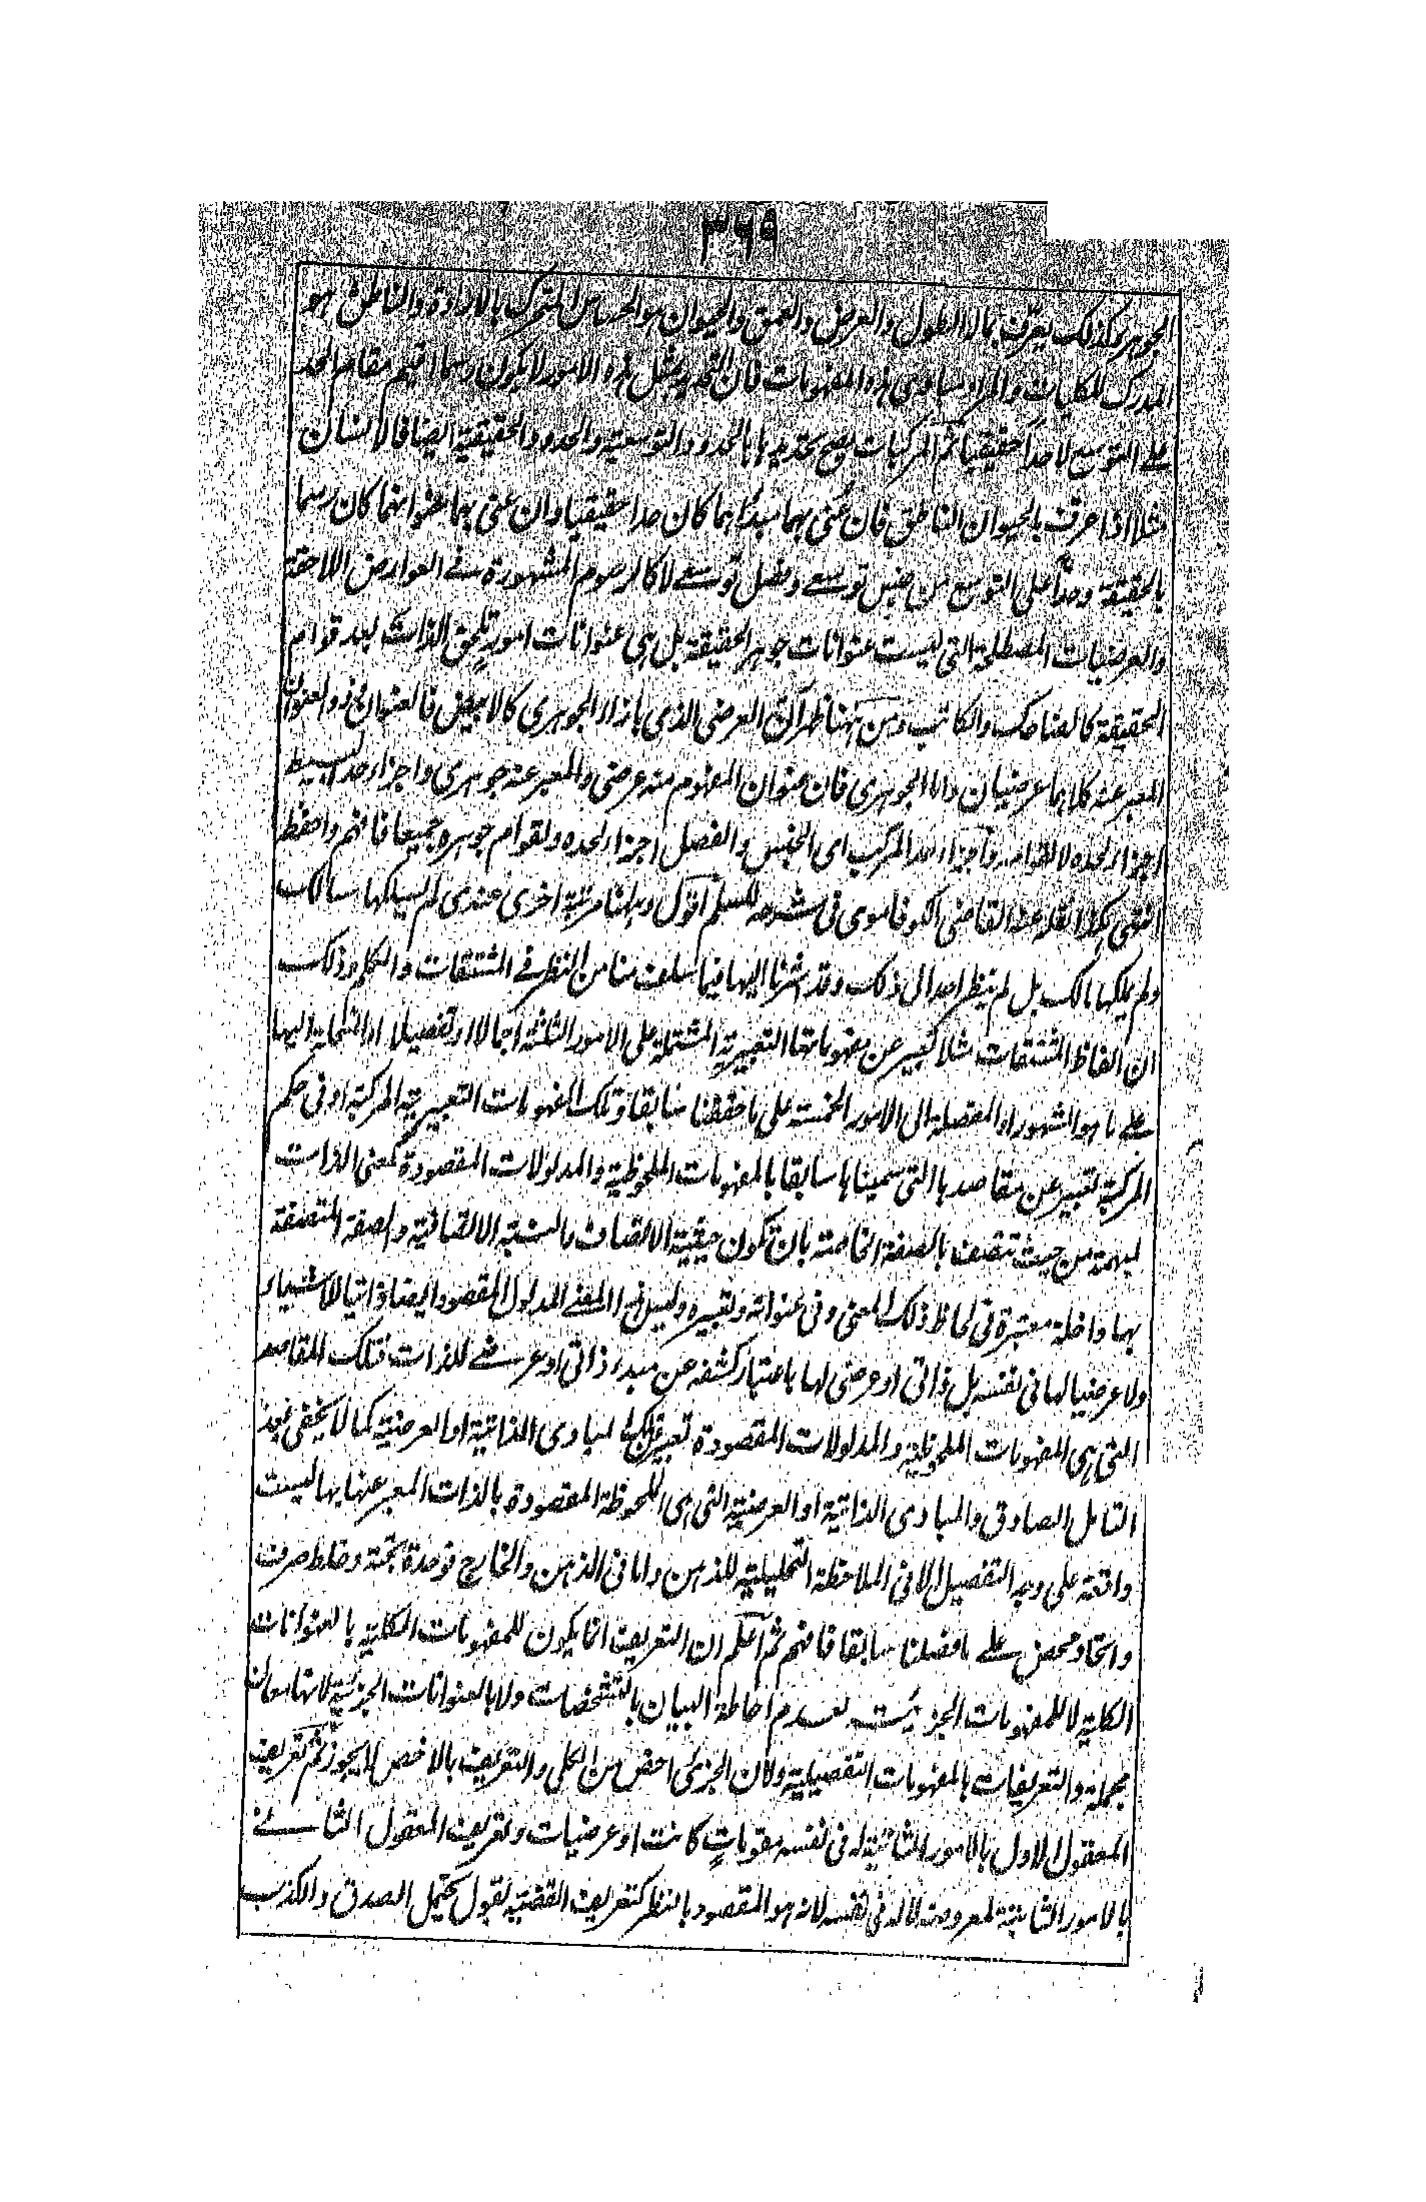 ٣٦٩
الجوهر كذلك يعرف بماله الطول والعرض والعمق والحيوان هو الحساس المتحرك بالارادة والناطق هو
المدرك للكليات والمراد مبادى هذه المفهومات فان التحديد بمثل هذه الامور لا يكون رسما اقيم مقام الحد
على التوسع لا حدا حقيقيا ثم المركبات يصح تحديدها بالحدود التوسعية والحدود الحقيقية ايضا فالانسان
مثلا اذا عرف بالحيوان الناطق فان عنى بهما مبدأهما كان حدا حقيقيا وان عنى بهما عنوانهما كان رسما
بالحقيقة وحدا على التوسع من جنس توسعے وفصل توسعے لا كالرسوم المشهورة فے العوارض اللاحقة
والعرضيات المصطلحة التى ليست عنوانات جوهر الحقيقة بل هى عنوانات امور تلحق الذات بعد قوام
الحقيقة كالضاحك والكاتب ومن ههنا ظهر ان العرضى الذى بازاء الجوهرى كالابيض فالعنوان وذو العنوان
المعبر عنه كلاهما عرضيان واما الجوهرى فان عنوان المفهوم منه عرضى والمعبر عنه جوهرى واجزاء حد البسيط
اجزاء لحده لا لقوامه واجزاء حد المركب اى الجنس والفصل اجزاء لحده ولقوام جوهره جميعا فافهم واحفظ
انتهى هكذا نقله عنه القاضى الكوفاموى فى شرحه للسلم اقول وههنا مرتبة اخرى عندى لم يسلكها سالك
ولم يملكها مالك بل لم ينظر احد الى ذلك وقد اشرنا اليها فيما سلف منا من النظر فے المشتقات والكلم وذلك
ان الفاظ المشتقات مثلا تعبير عن مفهوماتها التعبيرية المشتملة على الامور الثلثة اجمالا او تفصيلا او المنحلة اليها
علے ما هو المشهور او المفصلة الى الامور الخمسة على ما حققنا سابقا وتلك المفهومات التعبيرية المركبة او فى حكم
المركبة تعبير عن مقاصدها التى سميناها سابقا بالمفهومات الملحوظية والمدلولات المقصودة كمعنى الذات
المبهمة من حيث تتصف بالصفة الخاصة بان تكون حيثية الاتصاف بالنسبة الاتصافية والصفة المتصفة
بها داخلة معتبرة فى لحاظ ذلك المعنى وفى عنوانه وتعبيره وليس هذا المعنے المدلول المقصود ايضا ذاتيا للاشياء
ولا عرضيا لها فى نفسه بل ذاتى او عرضى لها باعتبار كشفه عن مبدء ذاتى او عرضے للذات فتلك المقاصد
التى هى المفهومات الملحوظية والمدلولات المقصودة تعبير تلك المبادى الذاتية او العرضية كما لا يخفى بعد
التامل الصادق والمبادى الذاتية او العرضية التى هى الملحوظة المقصودة بالذات المعبر عنها بها ليست
واقعة على وجه التفصيل الا فى الملاحظة التحليلية للذهن واما فى الذهن والخارج فوحدة بحتة وخلط صرف
واتحاد محض علے ما فصلنا سابقا فافهم ثم اعلم ان التعريف انما يكون للمفهومات الكلية بالعنوانات
الكلية لا للمفهومات الجزئية لعدم احاطة البيان بالتشخصات ولا بالعنوانات الجزئية لانها معان
مجملة والتعريفات بالمفهومات التفصيلية ولان الجزئى اخص من الكلى والتعريف بالاخص لا يجوز ثم تعريف
المعقول الاول بالامور الثابتة له فى نفسه مقومات كانت او عرضيات وتعريف المعقول الثانے
بالامور الثابتة لمعروضه لا له فى نفسه لانه هو المقصود بالنظر كتعريف القضية بقول يحتمل الصدق والكذب